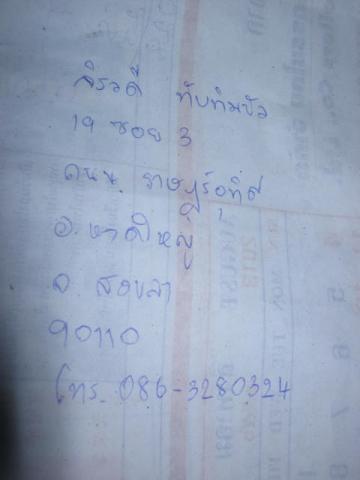 สิรวดี ทับทิมบัว
19 ซอย 3
ถนน ราษฎร์อุทิศ
อ. หาดใหญ่
จ สงขลา
90110
โทร. 086-3280324